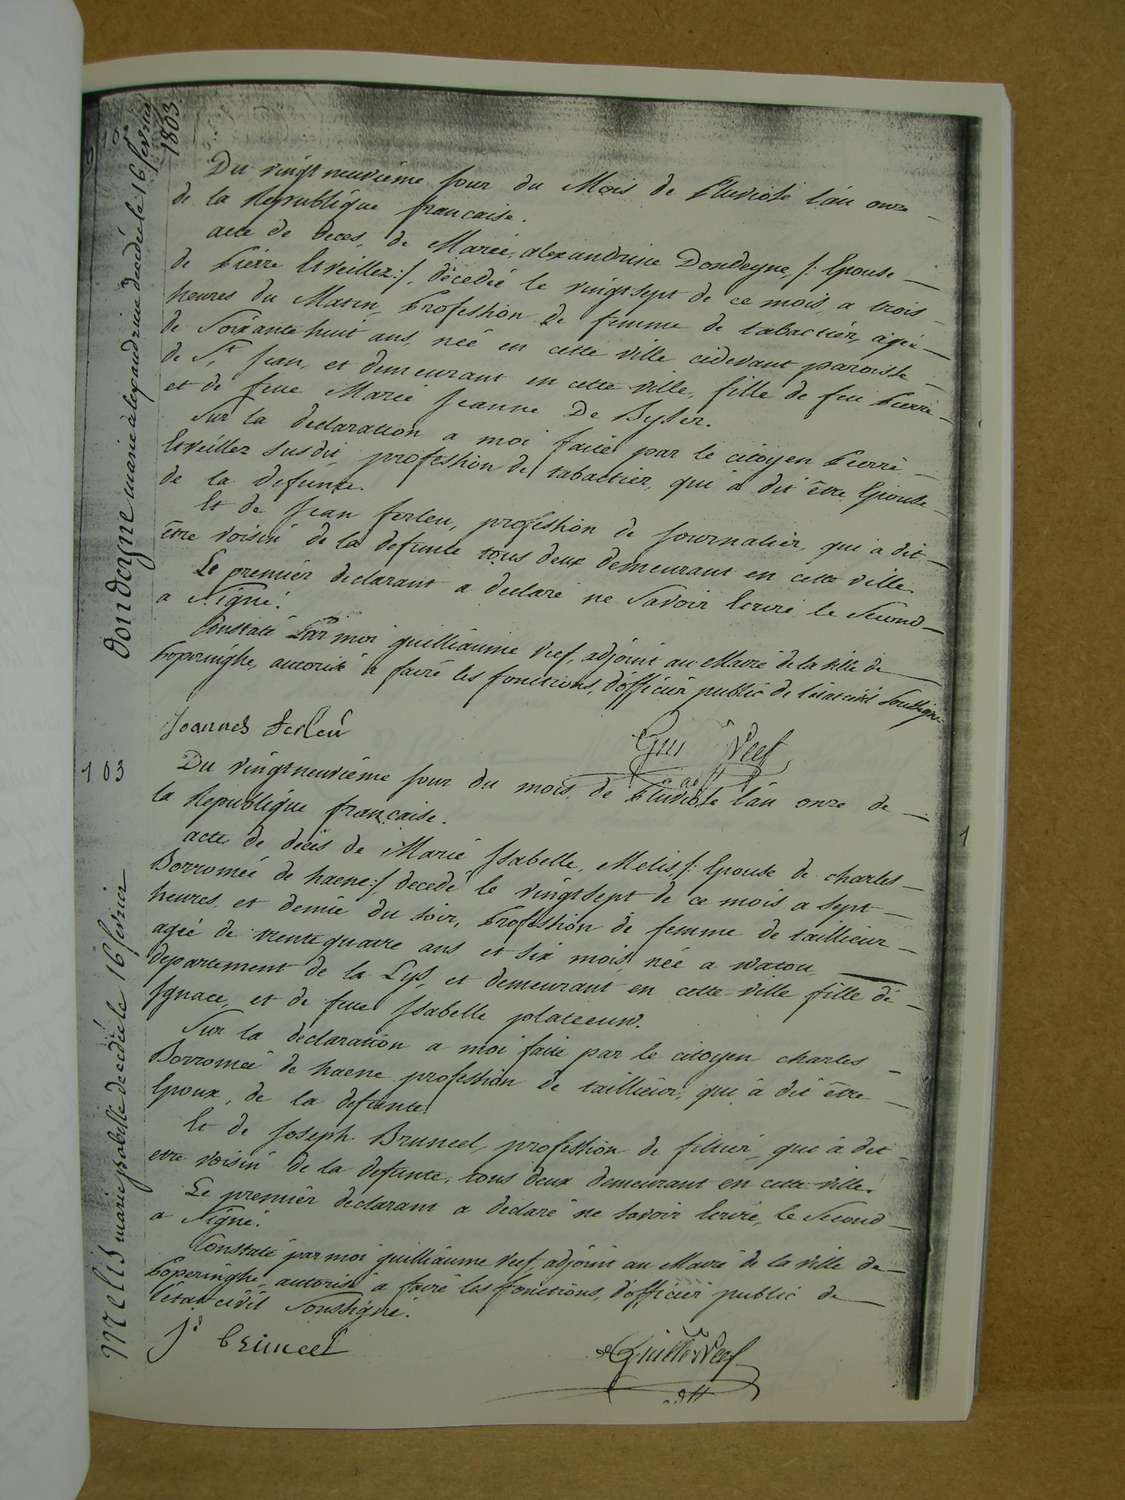 Dondeyne marie alexandrine decedée le 16 fevrier
1803
Du vingt neuvième jour du Mois de Pluviose l'an onze
de la Republique française.
acte de deces, de Marie, alexandrine Dondeyne, /: Epouse
de Pierre Leveillez :/, décedée le vingt sept de ce mois, a trois
heures du Matin, Profession de femme de tabactier, agée
de Soixante huit ans, née en cette ville cidevant paroisse
de St Jean, et demeurant en cette ville, fille de feu Pierre
et de feue Marie Jeanne De Byser.
Sur la declaration a moi faite par le citoyen Pierre
Leveillez susdit, profession de tabactier, qui à dit être Epouse
de la defunte.
Et de Jean ferleu, profession de Journalier, qui à dit
être voisin de la defunte tous deux demeurant en cette ville.
Le premier declarant a declaré ne Savoir Ecrire le Second
a Signé.
Constaté Par moi guilliaume Veef, adjoint au Maire de la ville de
Poperinghe, autorisé a faire les fonctions, d'officier public de l'etat civil Soussigné
Joannes ferleu
Gui Veef
adjt
103
Melis marie isabelle decedée le 16 fevrier
Du vingtneuvième jour du mois de Pluviose l'an onze de
la Republique française.
acte de décès de Marie Isabelle, Melis, /: Epouse de charles
Borromée de haene :/ decedé le vingtsept de ce mois a sept
heures, et demie du soir, Profession de femme de taillieur
agée de trente quatre ans et six mois, née a watou
departement de la Lys, et demeurant en cette ville fille de
Ignace, et de feue Isabelle plateeuw.
Sur la declaration a moi faite par le citoyen charles
Borromée de haene profession de taillieur, qui à dit être
Epoux, de la defunte.
Et de Joseph Bruneel, profession de filtier, qui à dit
etre voisin de la defunte, tous deux demeurant en cette ville.
Le premier declarant a declaré ne savoir Ecrire, le Second
a Signé.
Constaté par moi guilliaume Veef, adjoint au Maire de la ville de
Poperinghe, autorisé a faire les fonctions, d'officier public de
l'etat civil Soussigné.
Js bruneel
Guille Veef
adjt